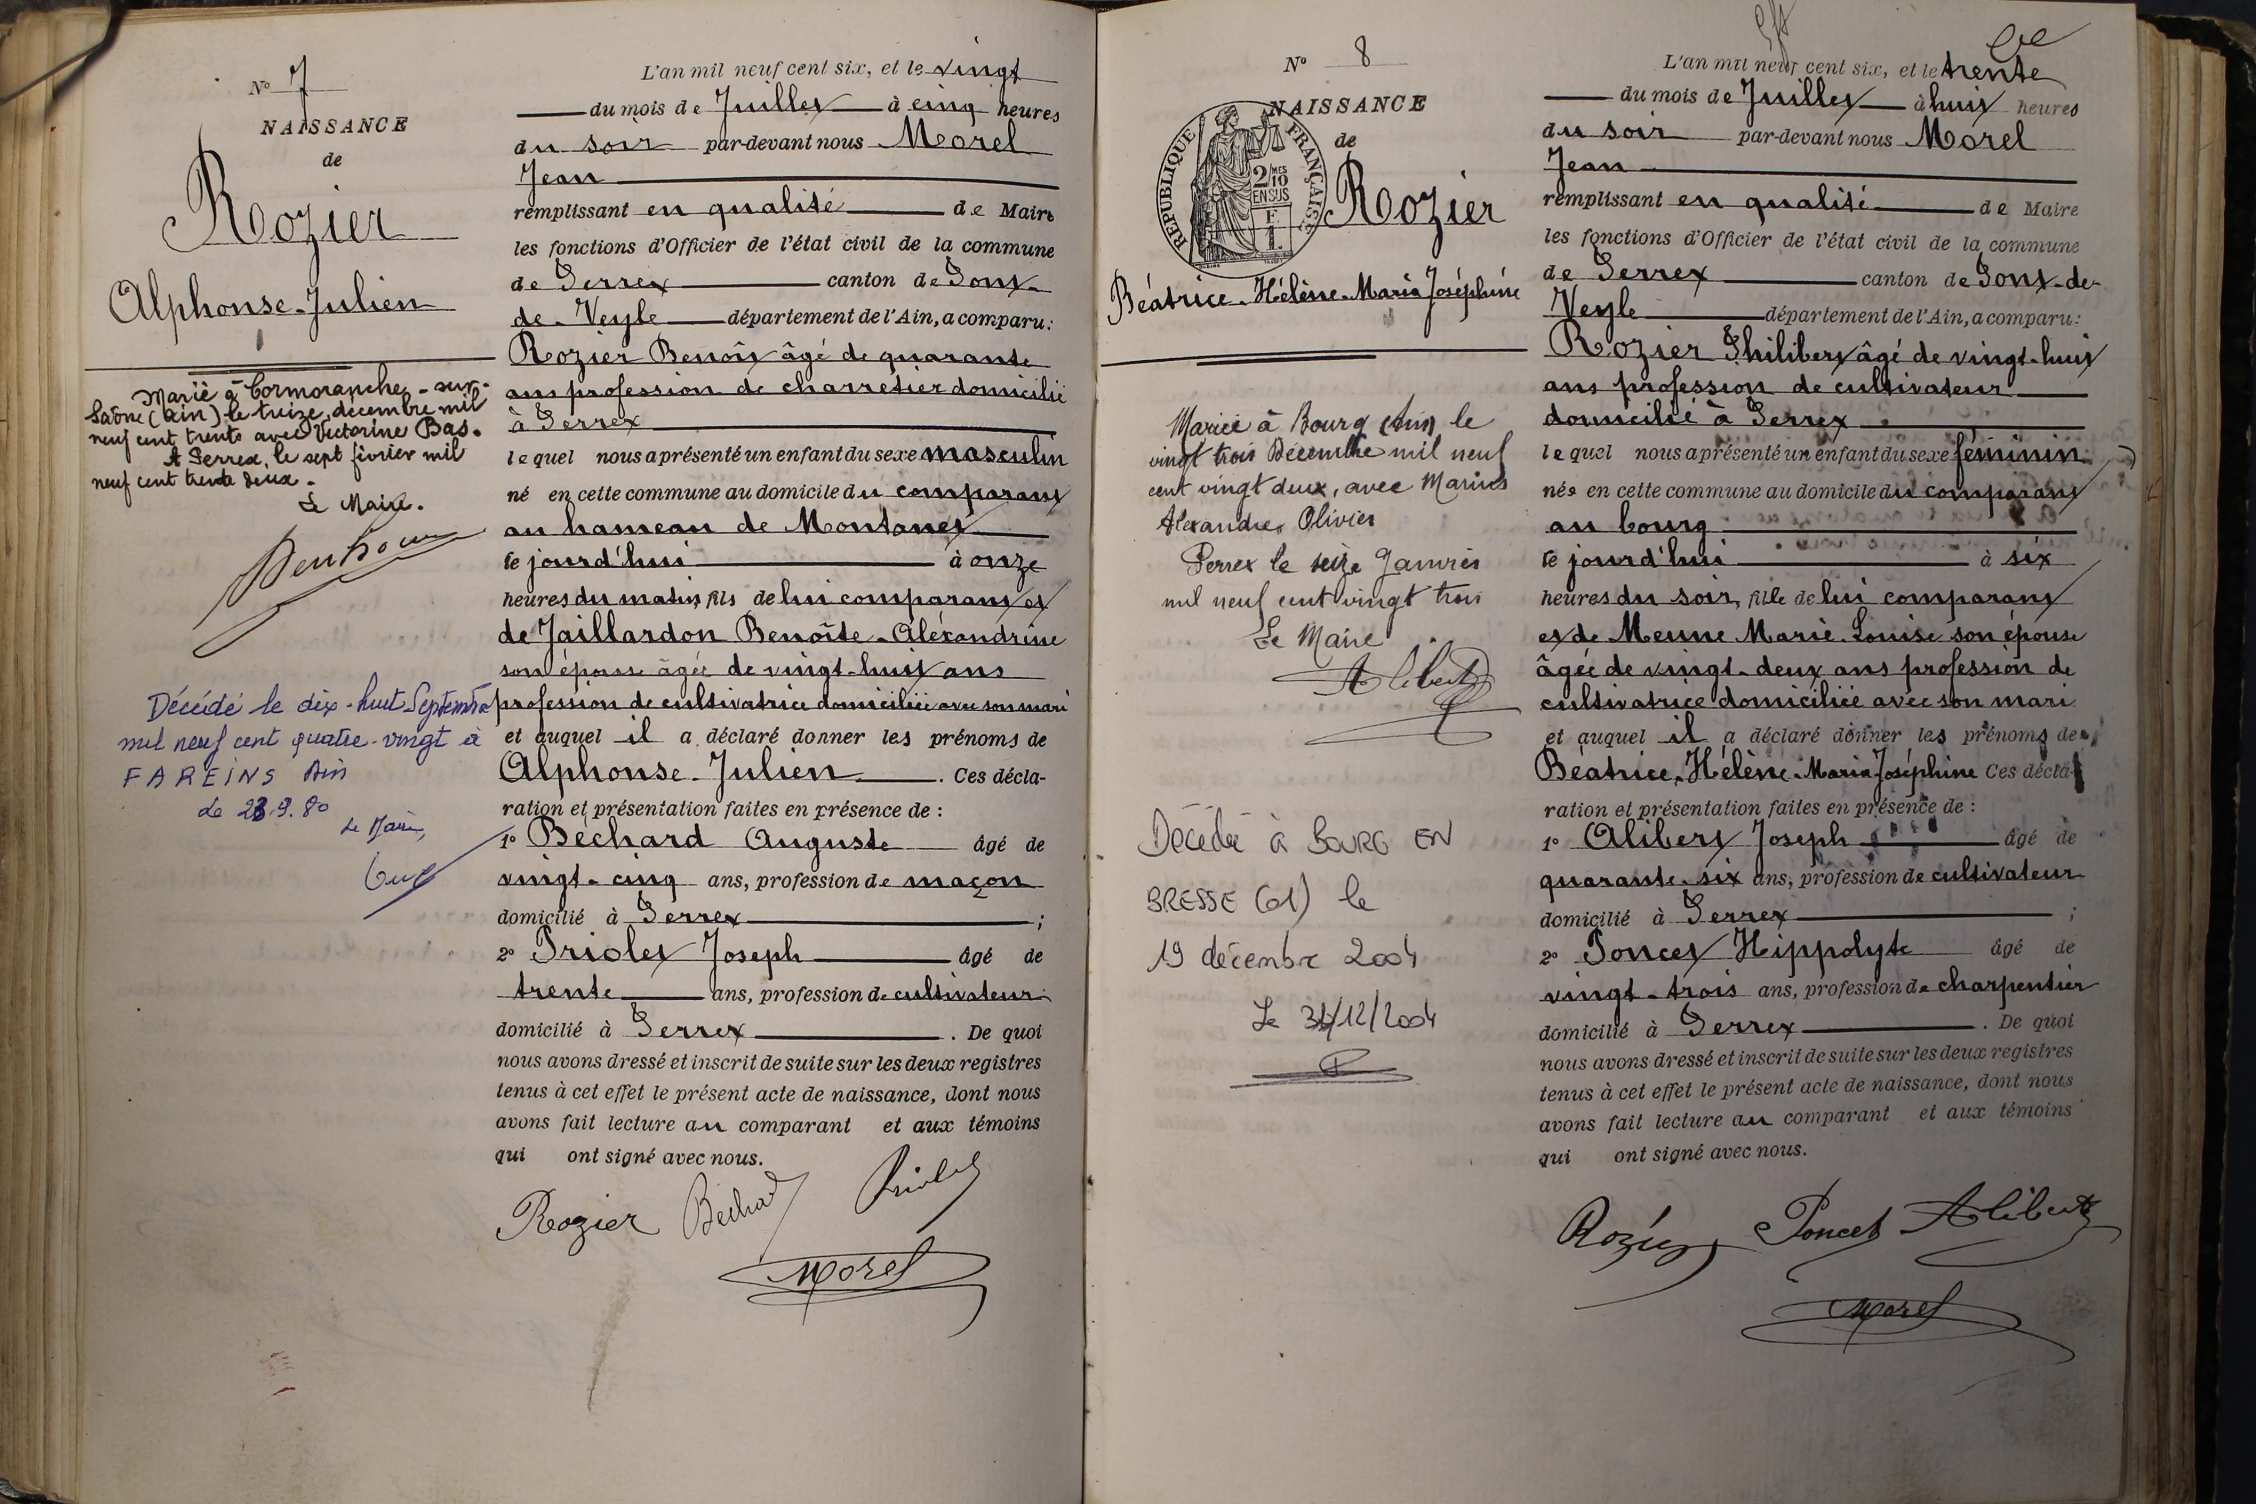 N° 7
NAISSANCE
de
Rozier
Alphonse-Julien
Marié à Cormoranche-sur-
Saône (Ain) le treize décembre mil
neuf cent trente avec Victorine Bas.
A Perrex, le sept février mil
neuf cent trente deux.
Le Maire.
Décédé le dix-huit Septembre
mil neuf cent quatre-vingt à
FAREINS Ain
Le Maire,
L'an mil neuf cent six, et le vingt
du mois de Juillet à cinq heures
du soir par-devant nous Morel
Jean
remplissant en qualité de Maire
les fonctions d'Officier de l'état civil de la commune
de Perrex canton de Pont-
de-Veyle département de l'Ain, a comparu:
Rozier Benoît âgé de quarante
ans profession de charretier domicilié
à Perrex
lequel nous a présenté un enfant du sexe masculin
né en cette commune au domicile du comparant
au hameau de Montanet
ce jourd'hui à onze
heures du matin, fils de lui comparant et
de Jaillardon Benoîte-Aléxandrine
son épouse âgée de vingt-huit ans
profession de cultivatrice domiciliée avec son mari
et auquel il a déclaré donner les prénoms de
Alphonse-Julien. Ces décla-
ration et présentation faites en présence de :
1° Béchard Auguste âgé de
vingt-cinq ans, profession de maçon
domicilié à Perrex ;
2° Priolet Joseph âgé de
trente ans, profession de cultivateur
domicilié à Perrex. De quoi
nous avons dressé et inscrit de suite sur les deux registres
tenus à cet effet le présent acte de naissance, dont nous
avons fait lecture au comparant et aux témoins
qui ont signé avec nous.
Rozier Béchard Priolet
Morel
N° 8
NAISSANCE
de
RÉPUBLIQUE FRANÇAISE
2/10 MES
EN SUS
Rozier
Béatrice-Hélène-Maria Joséphine
Mariée à Bourg (Ain) le
vingt trois Décembre mil neuf
cent vingt deux, avec Marius
Alexandre Olivier
Perrex le seize Janvier
mil neuf cent vingt trois
Le Maire
Alibert
Décédée à BOURG EN
BRESSE (01) le
19 décembre 2004
L'an mil neuf cent six, et le trente
du mois de Juillet à huit heures
du soir par-devant nous Morel
Jean
remplissant en qualité de Maire
les fonctions d'Officier de l'état civil de la commune
de Perrex canton de Pont-de-
Veyle département de l'Ain, a comparu:
Rozier Philibert âgé de vingt-huit
ans profession de cultivateur
domicilié à Perrex
lequel nous a présenté un enfant du sexe féminin
née en cette commune au domicile du comparant
au bourg
ce jourd'hui à six
heures du soir, fille de lui comparant
et de Meune Marie Louise son épouse
âgée de vingt-deux ans profession de
cultivatrice domiciliée avec son mari
et auquel il a déclaré donner les prénoms de
Béatrice-Hélène-Maria Joséphine Ces décla-
ration et présentation faites en présence de :
1° Alibert Joseph âgé de
quarante-six ans, profession de cultivateur
domicilié à Perrex ;
2° Poncet Hippolyte âgé de
vingt-trois ans, profession de charpentier
domicilié à Perrex. De quoi
nous avons dressé et inscrit de suite sur les deux registres
tenus à cet effet le présent acte de naissance, dont nous
avons fait lecture au comparant et aux témoins
qui ont signé avec nous.
Rozier Poncet Alibert
Morel